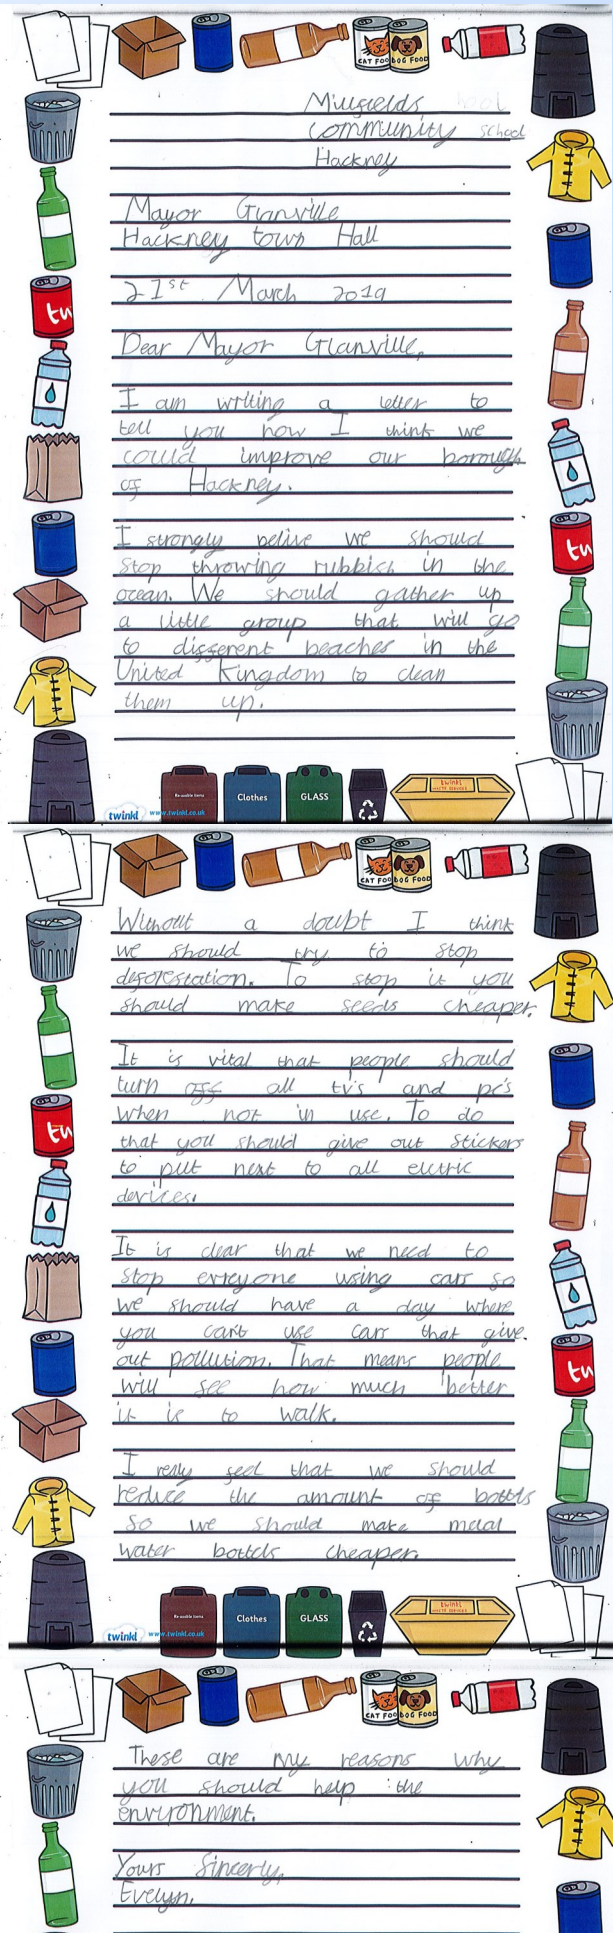 CAT FOOD
DOG FOOD
Millfields
community school
Hackney
Mayor Glanville
Hackney town Hall
21st March 2019
Dear Mayor Glanville,
I am writing a letter to
tell you how I think we
could improve our borough
of Hackney.
I strongly belive we should
stop throwing rubbish in the
ocean. We should gather up
a little group that will go
to different beaches in the
United Kingdom to clean
them up.
Re-usable items
Clothes
GLASS
twinkl
WASTE SERVICES
twinkl
www.twinkl.co.uk
CAT FOOD
DOG FOOD
Without a doubt I think
we should try to stop
deforestation. To stop it you
should make seeds cheaper.
It is vital that people should
turn off all tv's and pc's
when not in use. To do
that you should give out stickers
to put next to all electric
devices.
It is clear that we need to
stop evreyone using cars so
we should have a day where
you can't use cars that give
out pollution. That means people
will see how much better
it is to walk.
I really feel that we should
reduce the amount of bottels
so we should make metal
water bottels cheaper.
Re-usable items
Clothes
GLASS
twinkl
WASTE SERVICES
twinkl
www.twinkl.co.uk
CAT FOOD
DOG FOOD
These are my reasons why
you should help the
environment.
Yours Sincerly,
Evelyn.